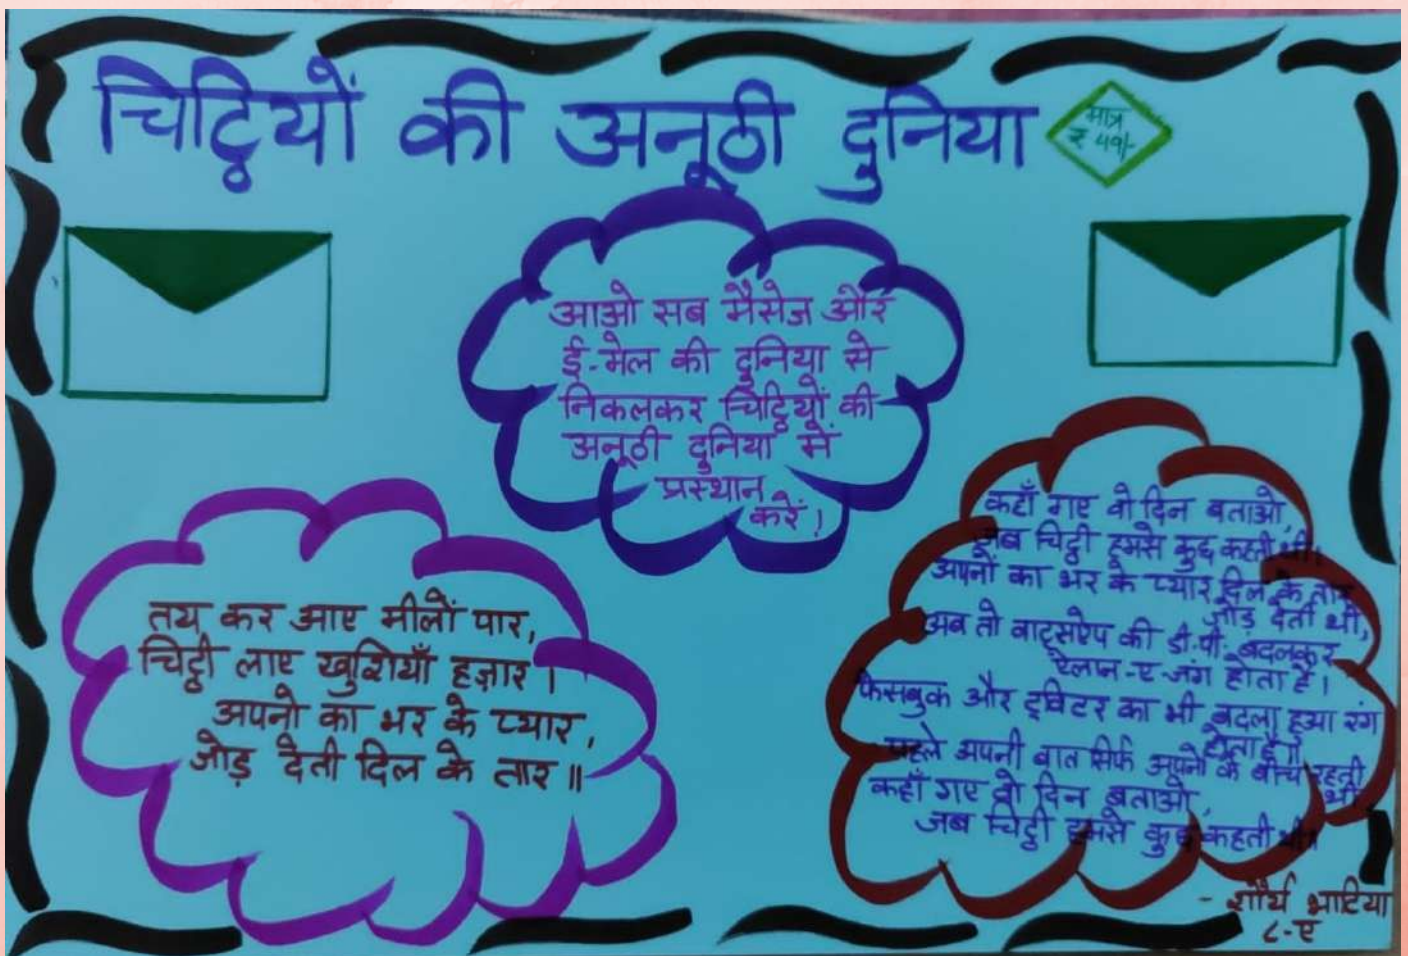 चिट्ठियों की अनूठी दुनिया
मात्र
₹ ५९/-
आओ सब मैसेज और
ई-मेल की दुनिया से
निकलकर चिट्ठियों की
अनूठी दुनिया में
प्रस्थान
करें!
तय कर आए मीलों पार,
चिट्ठी लाए खुशियाँ हज़ार।
अपनो का भर के प्यार,
जोड़ देती दिल के तार॥
कहाँ गए वो दिन बताओ,
जब चिट्ठी हमसे कुछ कहती थी।
अपनों का भर के प्यार दिल के तार
जोड़ देती थी,
अब तो वाट्सऐप की डी.पी. बदलकर
ऐलान-ए-जंग होता है।
फेसबुक और ट्विटर का भी बदला हुआ रंग
होता है।
पहले अपनी बात सिर्फ अपनों के बीच रहती
थी
कहाँ गए वो दिन बताओ,
जब चिट्ठी हमसे कुछ कहती थी।
- शौर्य भाटिया
८-ए